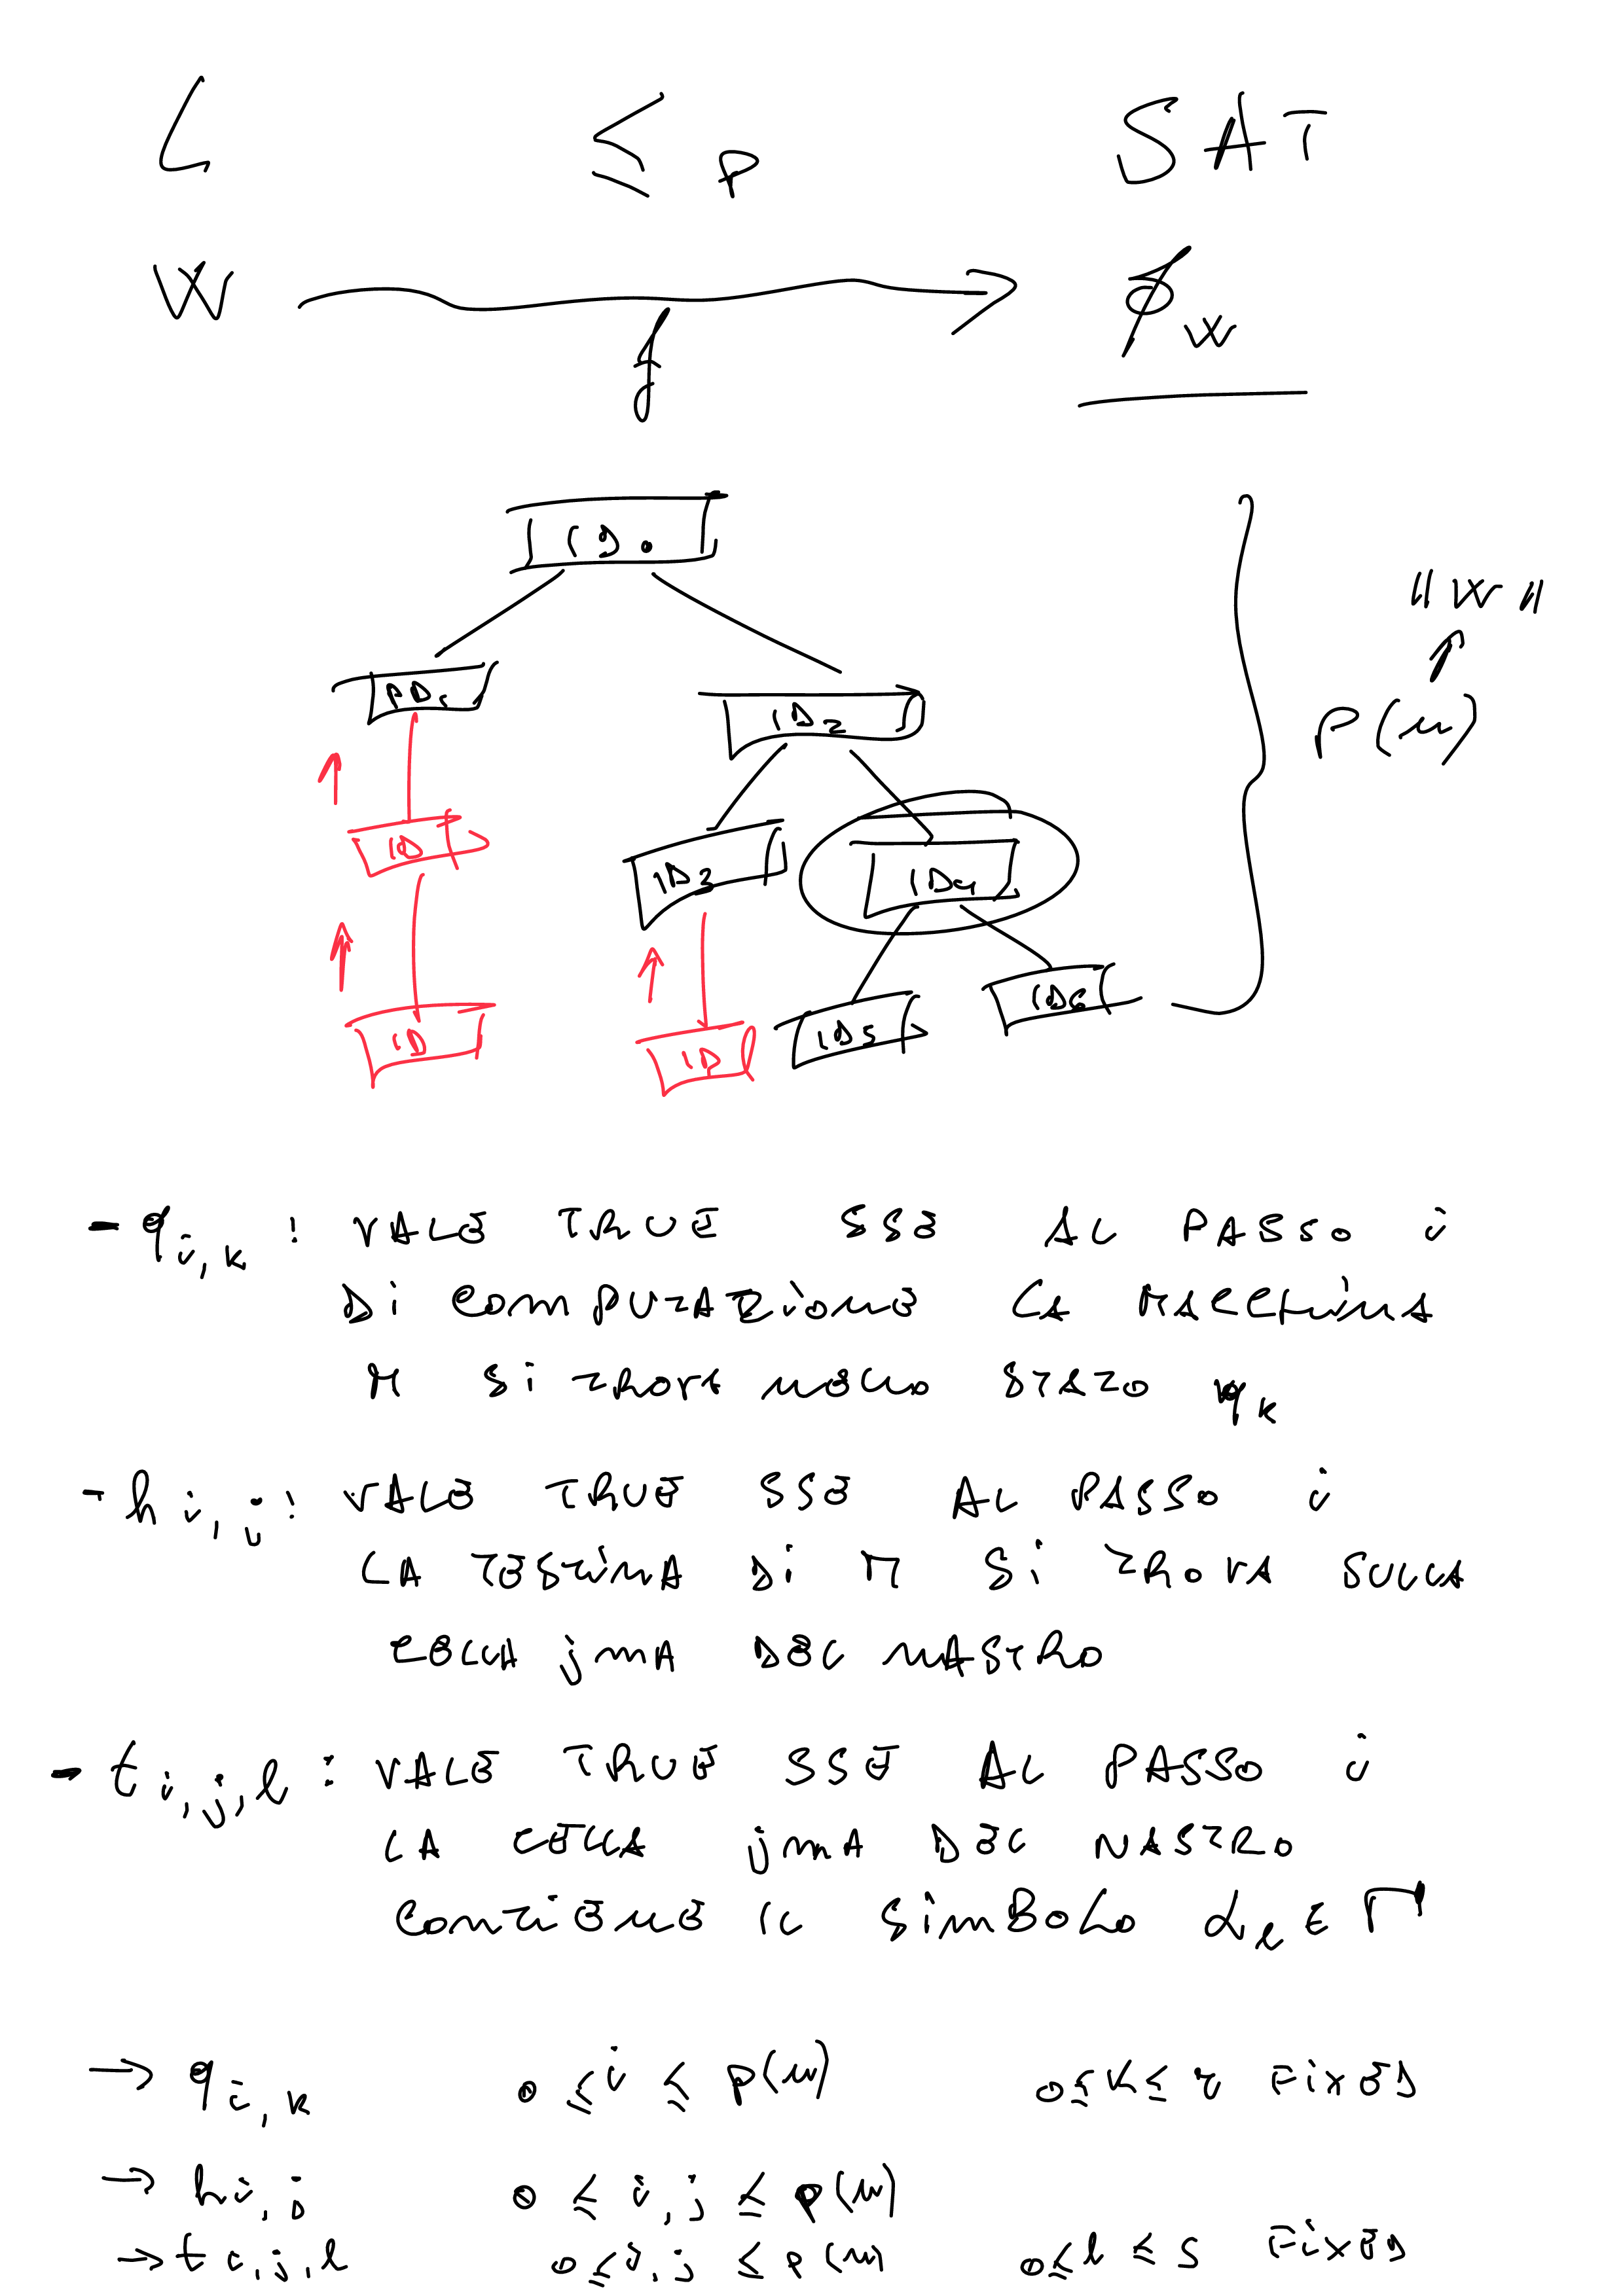 L ≤p SAT
w f ϕw
ID0
ID1 ID2
"w"
p(n)
ID ID3 ID4
ID ID ID5 ID6
- qi,k : VALE TRUE SSE AL PASSO i
DI COMPUTAZIONE LA MACCHINA
M SI TROVA NELLO STATO qk
- hi,j : VALE TRUE SSE AL PASSO i
LA TESTINA DI M SI TROVA SULLA
CELLA jma DEL NASTRO
- ti,j,l : VALE TRUE SSE AL PASSO i
LA CELLA jma DEL NASTRO
CONTIENE IL SIMBOLO αl ∈ Γ
→ qi,k 0 ≤ i ≤ p(n) 0 ≤ k ≤ r FIXED
→ hi,j 0 ≤ i,j ≤ p(n)
→ ti,j,l 0 ≤ i,j ≤ p(n) 0 ≤ l ≤ s FIXED